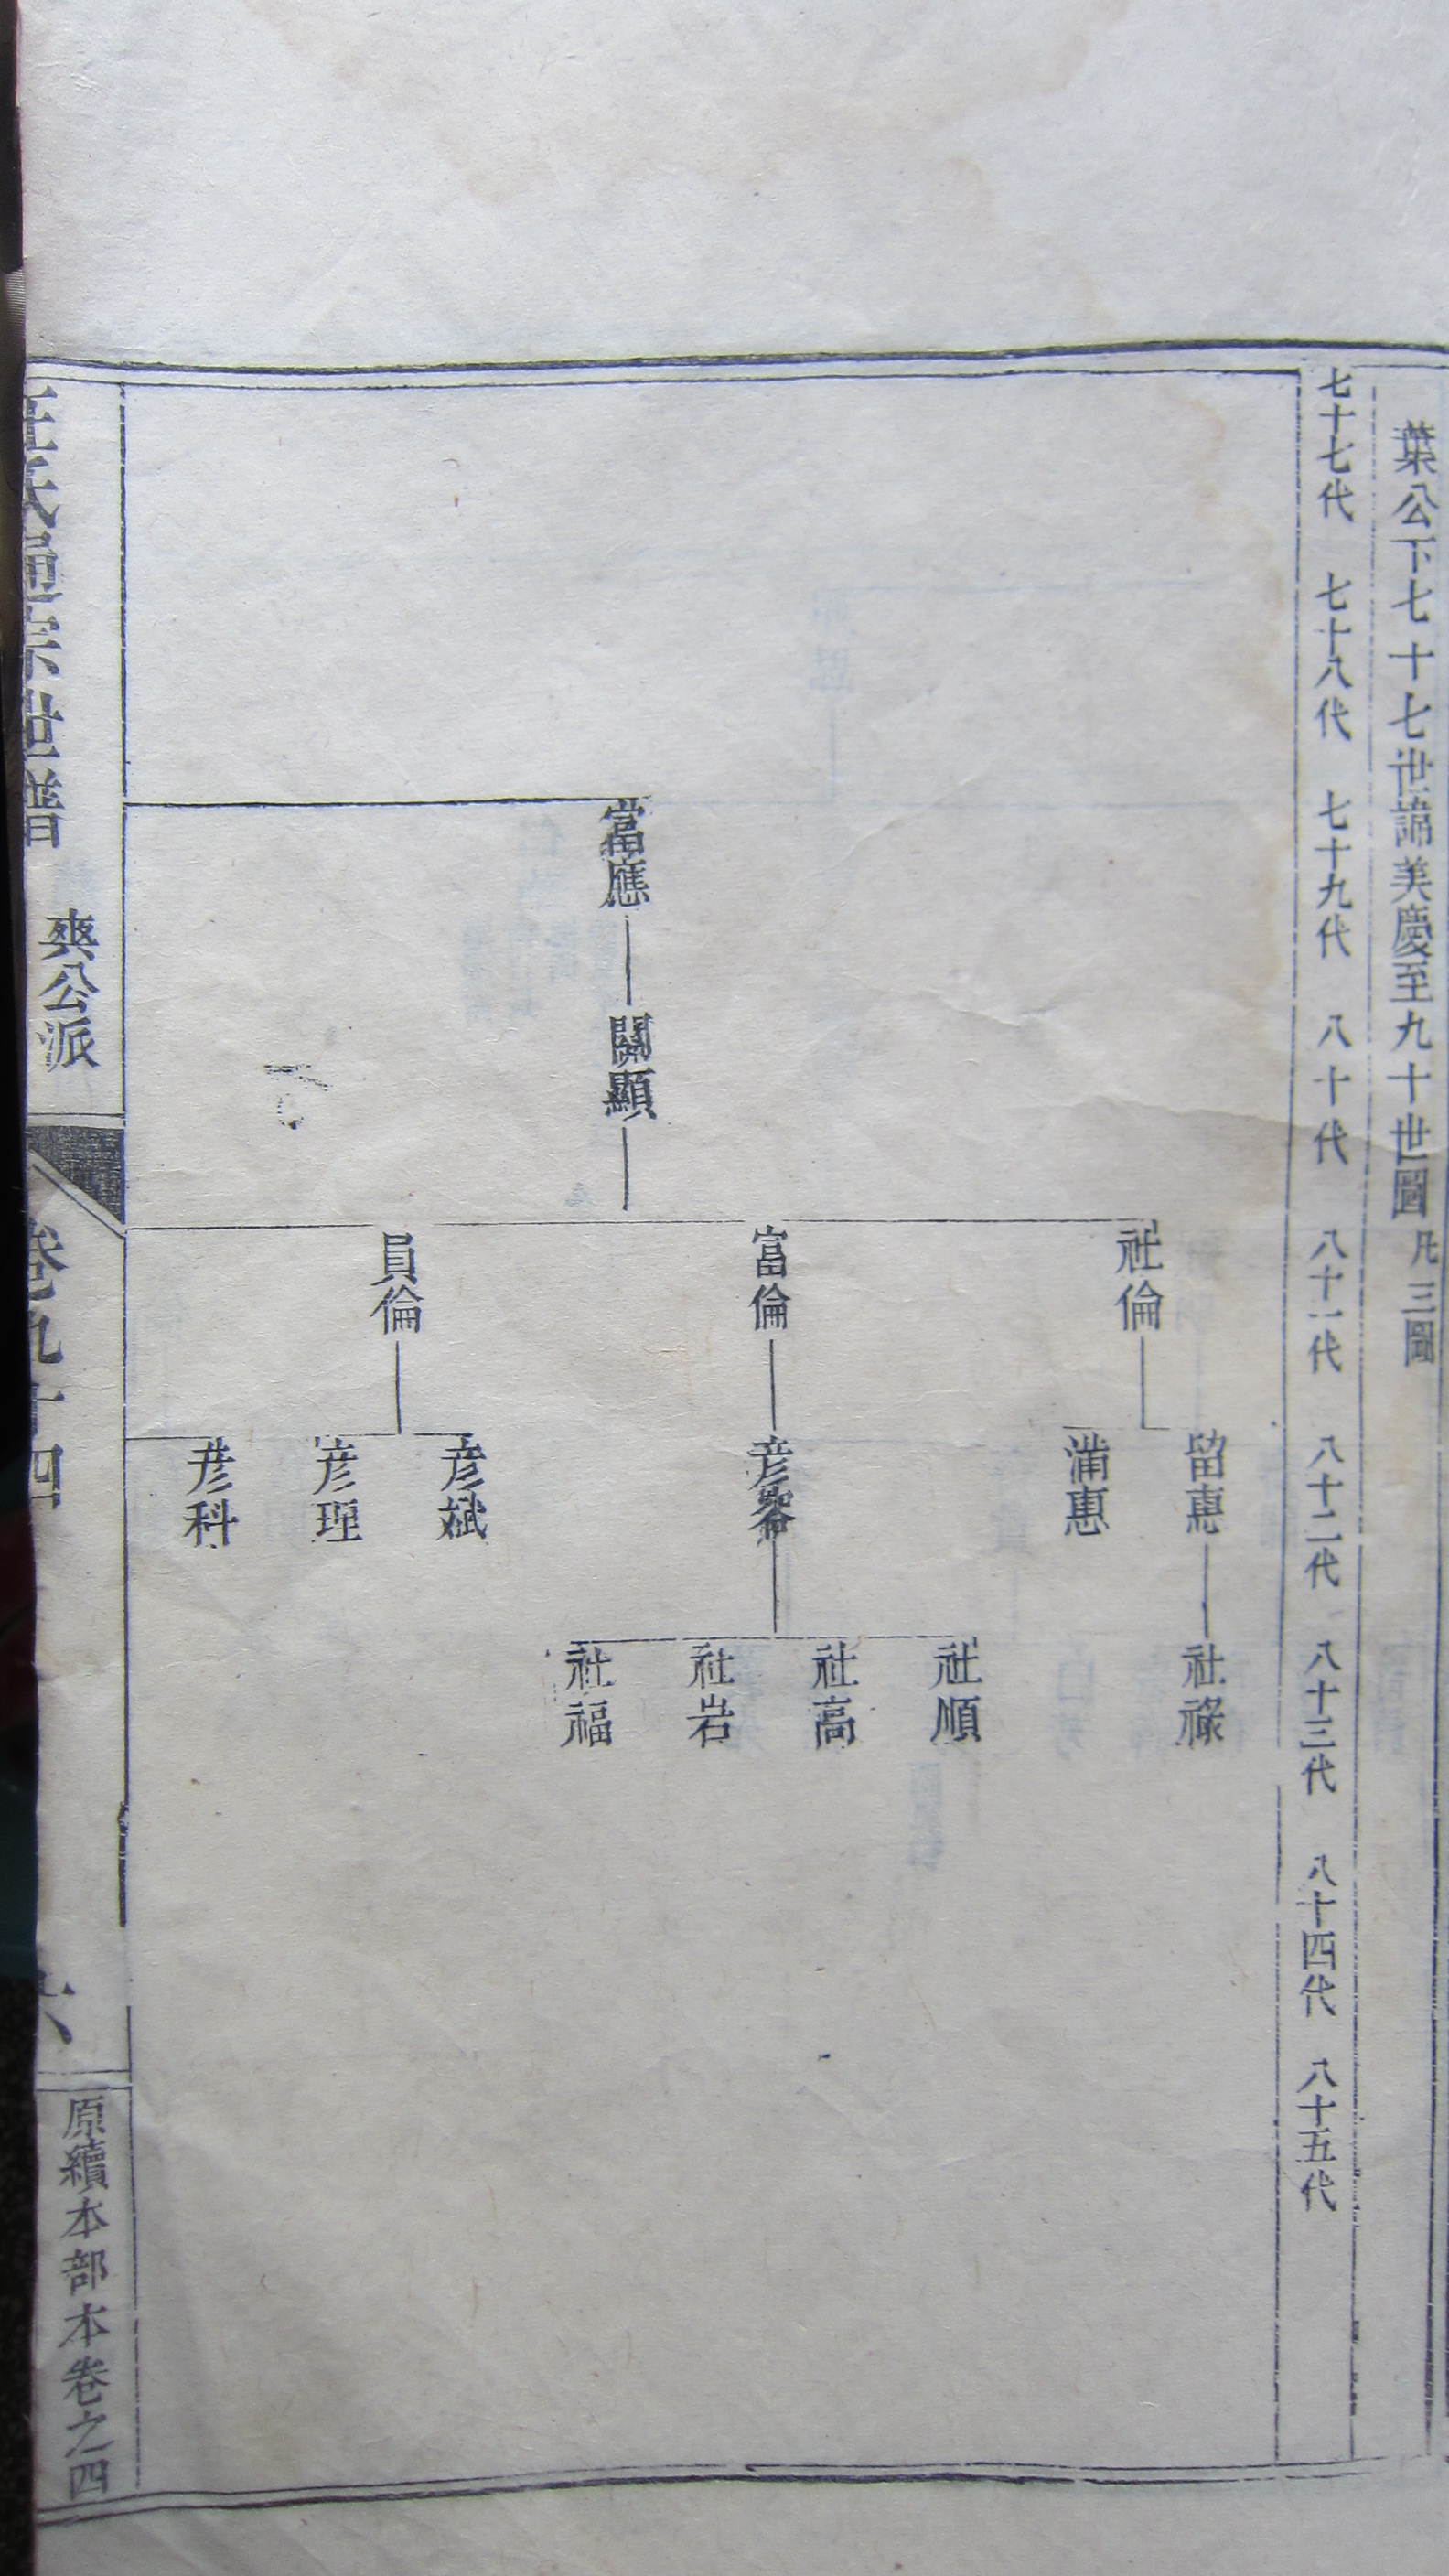 葉公下七十七世諱美慶至九十世圖 凡三圖
七十七代 七十八代 七十九代 八十代 八十一代 八十二代 八十三代 八十四代 八十五代
當應
開顯
社倫
富倫
員倫
留惠
滿惠
彦
彦斌
彦理
彦科
社祿
社順
社高
社岩
社福
氏通宗世譜 爽公派 卷九十四 六
原續本部本卷之四